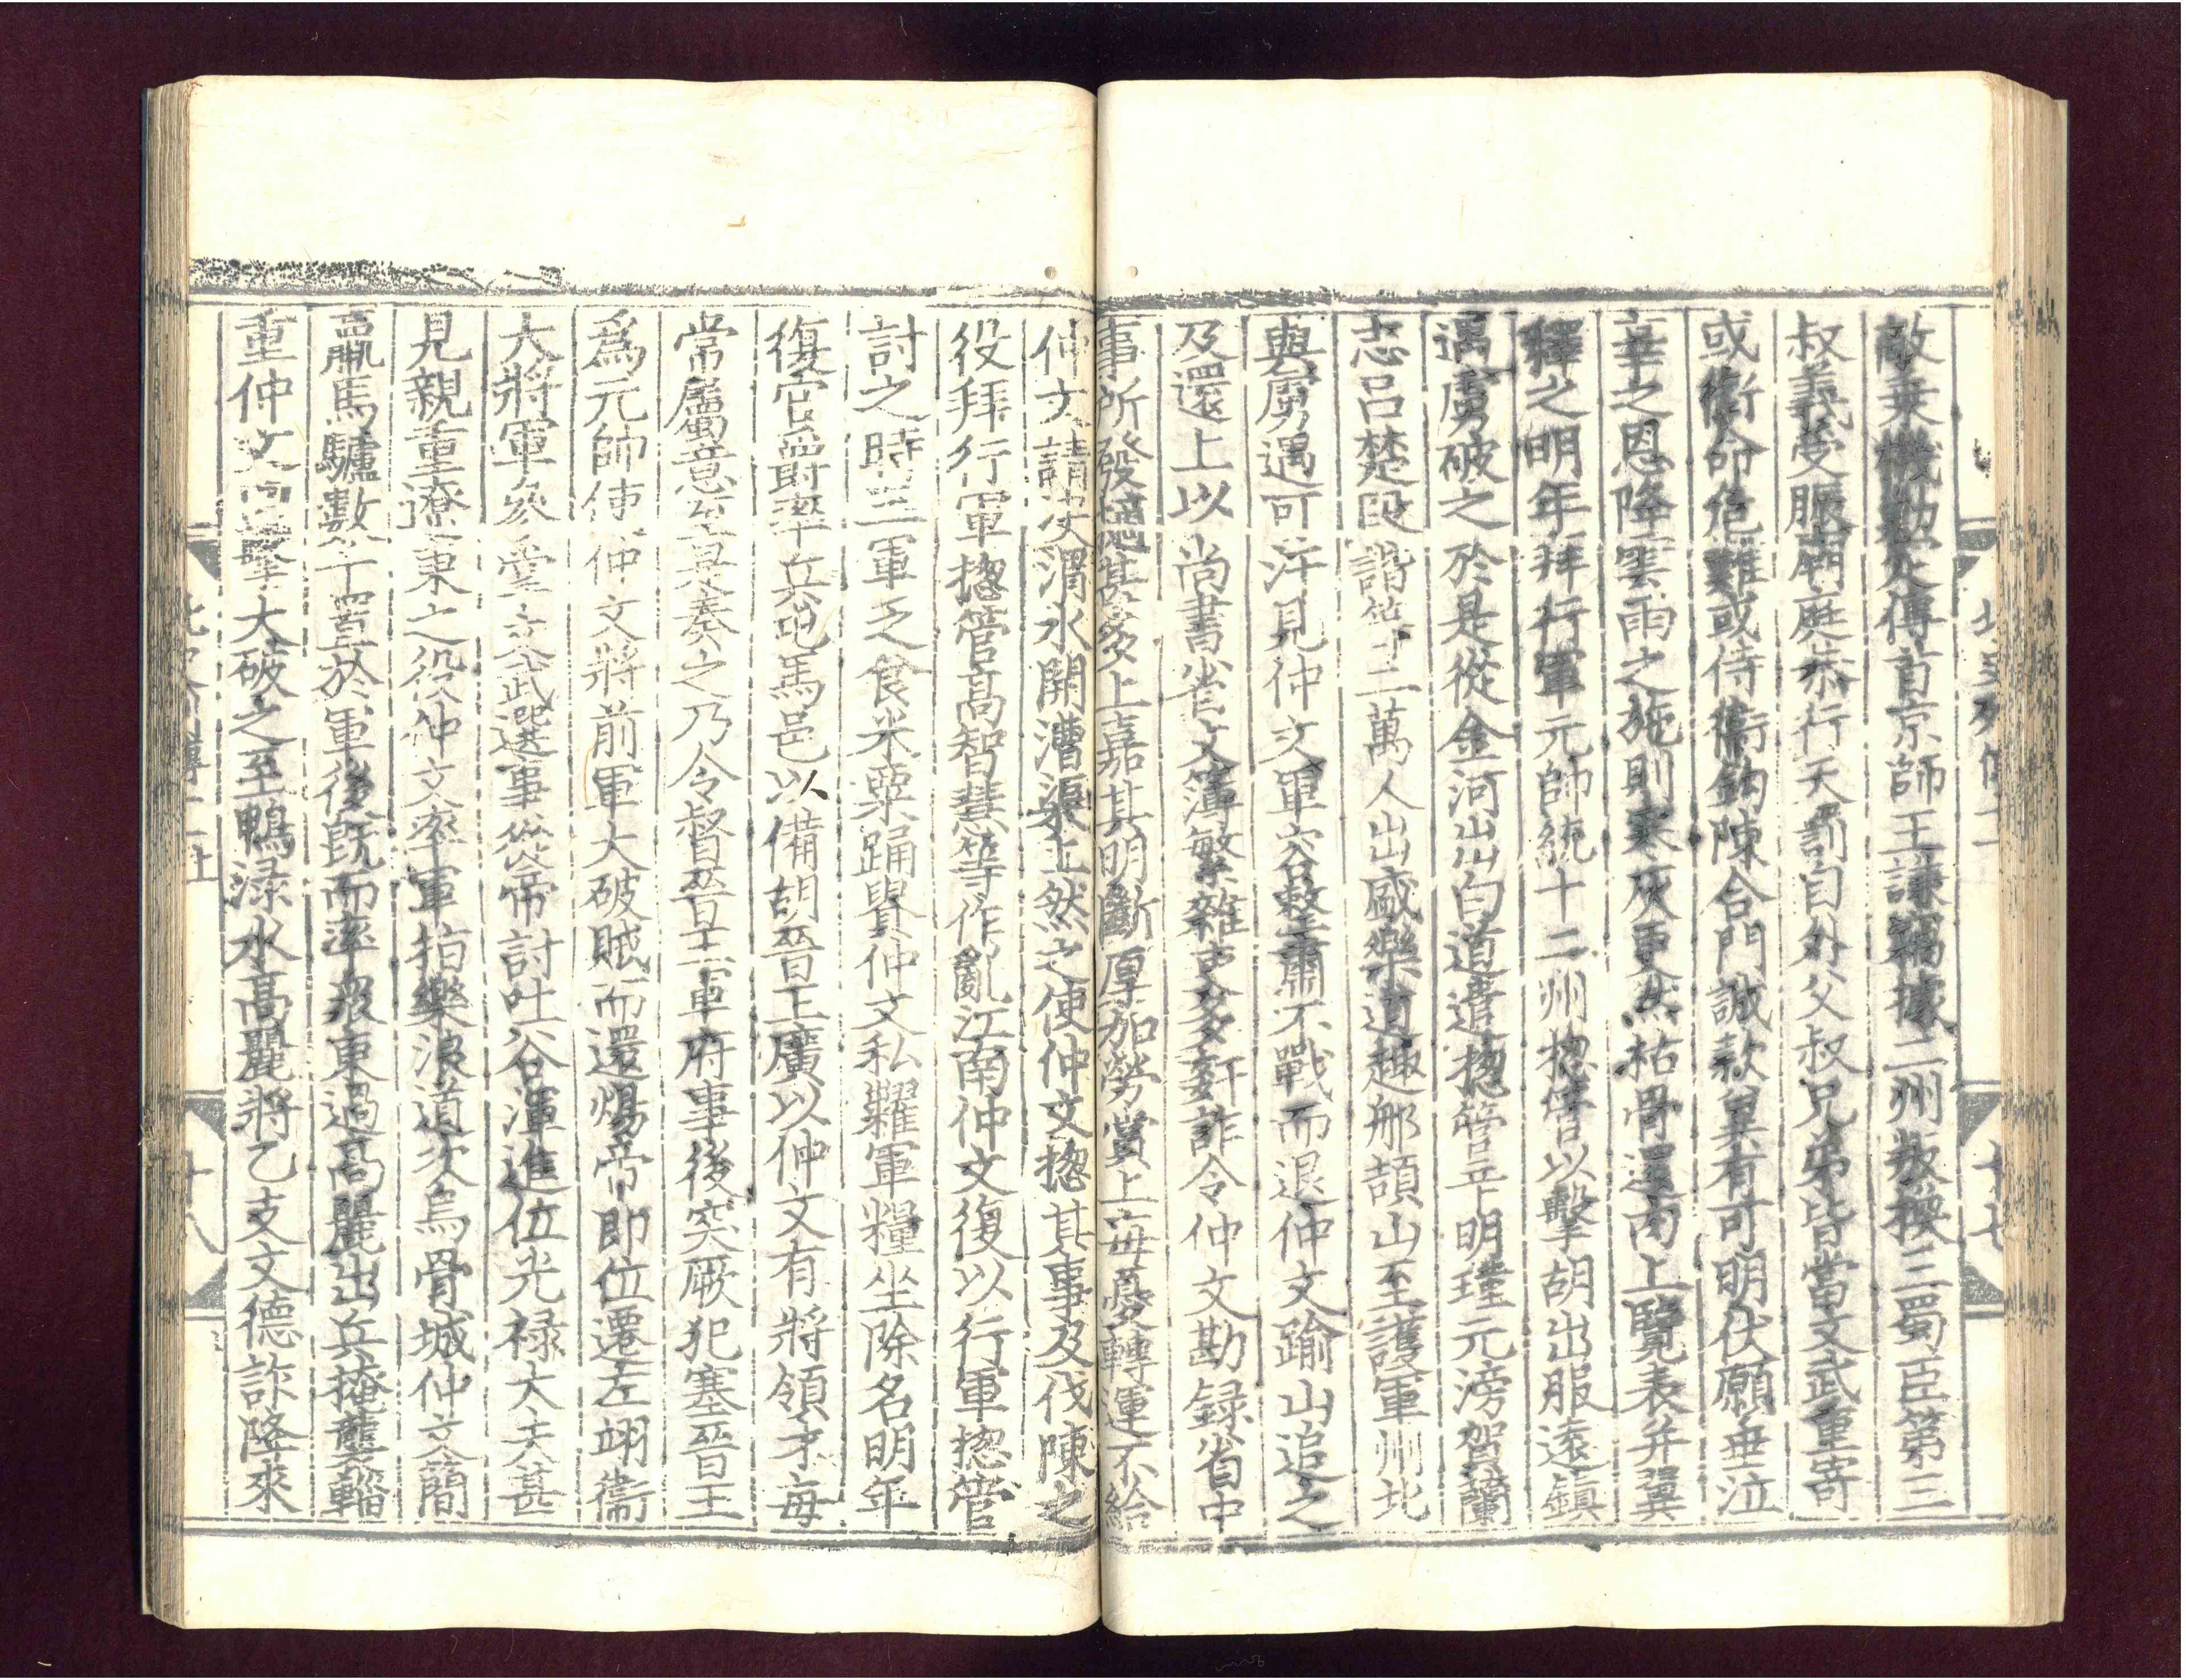 敵乗機勦定傳首京師王謙竊據二州叛換三蜀臣第三
叔義受脤廟庭恭行天罰自外父叔兄弟皆當文武重寄
或銜命危難或侍衛鈎陳合門誠款冀有可明伏願垂泣
辜之恩降雲雨之施則寒灰更然枯骨還肉上覽表并翼
釋之明年拜行軍元帥統十二州揔管以擊胡出服遠鎮
遇虜破之於是從金河出白道遣揔管辛明瑾元滂賀蘭
志呂楚段諧等二萬人出盛樂道趣那頡山至護軍州北
與虜遇可汗見仲文軍容整肅不戰而退仲文踰山追之
及還上以尚書省文簿繁雜吏多姦詐令仲文勘録省中
事所發擿甚多上嘉其明斷厚加勞賞上每憂轉運不給
仲文請决渭水開漕渠上然之使仲文揔其事及伐陳之
役拜行軍揔管高智慧等作亂江南仲文復以行軍揔管
討之時三軍乏食米粟踊貴仲文私糶軍糧坐除名明年
復官爵率兵屯馬邑以備胡晉王廣以仲文有將領才每
常屬意至是奏之乃令督晉王軍府事後突厥犯塞晉王
爲元帥使仲文將前軍大破賊而還煬帝即位遷左翊衛
大將軍參掌文武選事從帝討吐谷渾進位光禄大夫甚
見親重遼東之役仲文率軍指樂浪道次烏骨城仲文簡
羸馬驢數千置於軍後既而率衆東過高麗出兵掩襲輜
重仲文回擊大破之至鴨渌水高麗將乙支文德詐降來